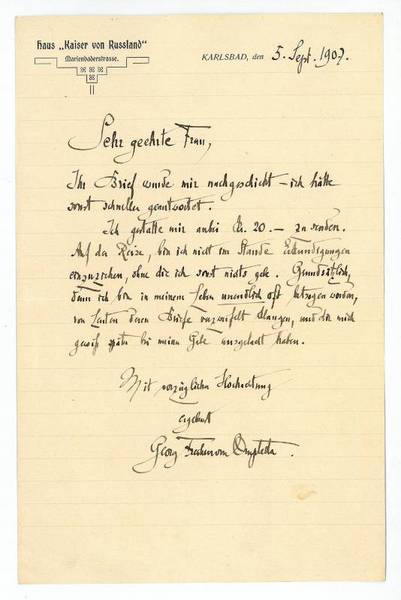 Haus „Kaiser von Russland"
Marienbaderstrasse.
KARLSBAD, den 5. Sept. 1907.
Sehr geehrte Frau,
Ihr Brief wurde mir nachgeschickt – ich hätte
sonst schneller geantwortet.
Ich gestatte mir anbei 20.— zu senden.
Auf der Reise, bin ich nicht im Stande Erkundigungen
einzuziehen, ohne die ich sonst nichts gebe. Grundsätzlich,
denn ich bin in meinem Leben unendlich oft betrogen worden,
von Leuten deren Briefe verzweifelt klangen, und die mich
gewiß später bei meinem Gelde ausgelacht haben.
Mit vorzüglicher Hochachtung
ergebenst
Georg Freiherr von Ompteda.